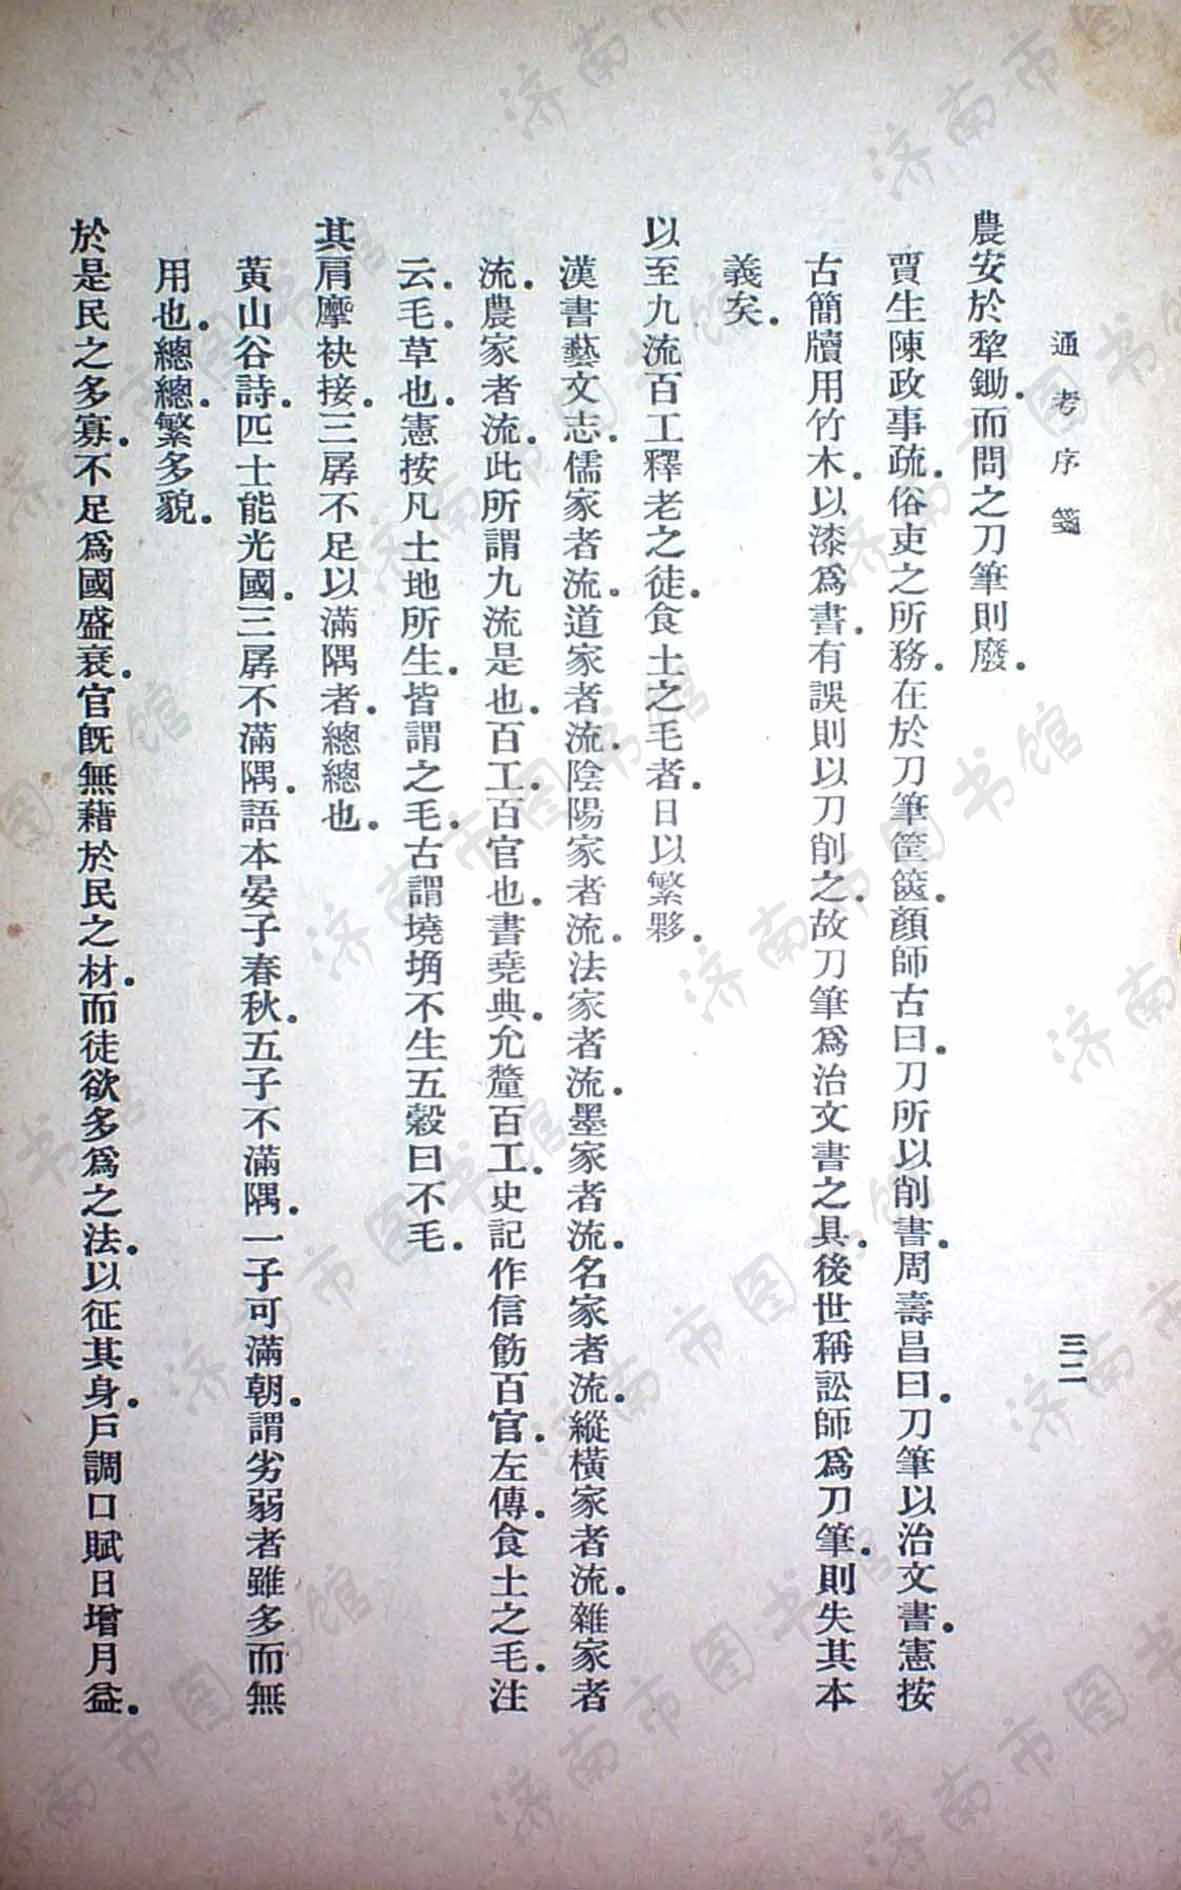 通考序箋
三二
農安於犂鋤．而問之刀筆則廢．
賈生陳政事疏．俗吏之所務．在於刀筆筐篋．顏師古曰．刀所以削書．周壽昌曰．刀筆以治文書．憲按
古簡牘用竹木．以漆爲書．有誤則以刀削之．故刀筆爲治文書之具．後世稱訟師爲刀筆．則失其本
義矣．
以至九流百工釋老之徒．食土之毛者．日以繁夥．
漢書藝文志．儒家者流．道家者流．陰陽家者流．法家者流．墨家者流．名家者流．縱橫家者流．雜家者
流．農家者流．此所謂九流是也．百工．百官也．書堯典．允釐百工．史記作信飭百官．左傳．食土之毛．注
云．毛．草也．憲按凡土地所生．皆謂之毛．古謂墝埆不生五穀曰不毛．
其肩摩袂接．三孱不足以滿隅者．總總也．
黃山谷詩．匹士能光國．三孱不滿隅．語本晏子春秋．五子不滿隅．一子可滿朝．謂劣弱者雖多而無
用也．總總．繁多貌．
於是民之多寡．不足爲國盛衰．官旣無藉於民之材．而徒欲多爲之法．以征其身．戶調口賦日增月益．
济南市图书馆